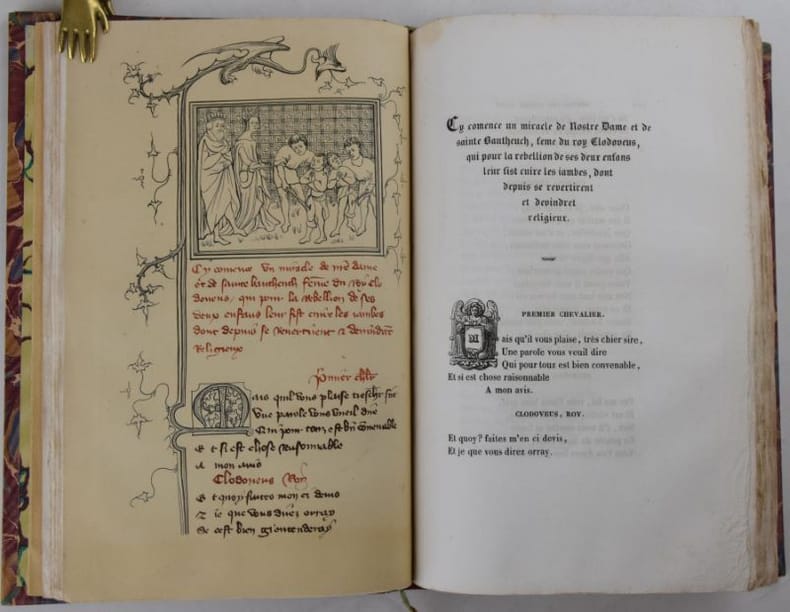 Cy comence un miracle de nre dame
et de sainte bautheuch feme du Roy Clo
doveus, qui pour la Rebellion de ses
deux enfans leur fist cuire les iambes
dont depuis se Revertirent & devindrent
Religieux
Premier chlr
Mais quil vous plaise treschr sire
Une parole vous vueil dire
Qui pour touz est bien convenable
Et si est chose Raisonnable
A mon avis
Clodoveus Roy
Et quoy faites men ci devis
Et ie que vous direz orray
Se cest bien gi entenderay
Cy comence un miracle de Nostre Dame et de
sainte Bautheuch, feme du roy Clodoveus,
qui pour la rebellion de ses deux enfans
leur fist cuire les iambes, dont
depuis se revertirent
et devindret
religieux.
PREMIER CHEVALIER.
Mais qu'il vous plaise, très chier sire,
Une parole vous veuil dire
Qui pour tous est bien convenable,
Et si est chose raisonnable
A mon avis.
CLODOVEUS, ROY.
Et quoy? faites m'en ci devis,
Et je que vous direz orray.